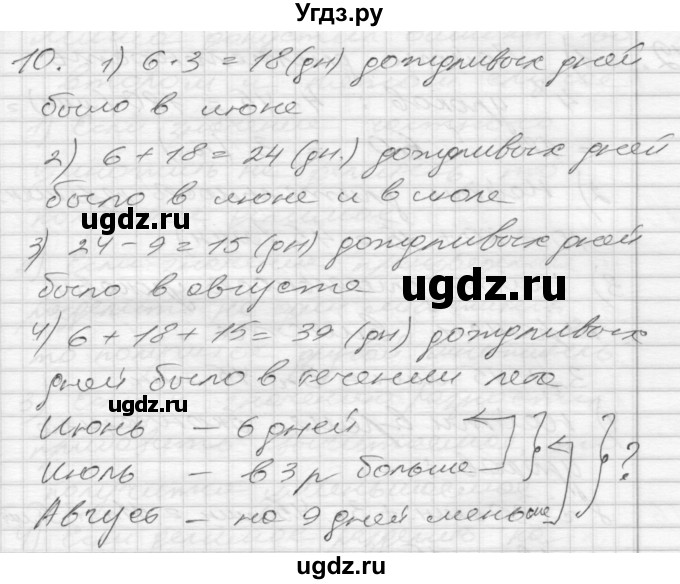 Угдз.ру
10. 1) 6·3 = 18 (дн) дождливых дней
было в июне
2) 6 + 18 = 24 (дн.) дождливых дней
было в июне и в июле
ugdz.ru
3) 24 - 9 = 15 (дн) дождливых дней
было в августе
ugdz.ru
4) 6 + 18 + 15 = 39 (дн) дождливых
дней было в течении лета
ugdz.ru
Июнь - 6 дней
Июль - в 3 р больше
?
Август - на 9 дней меньше
ugdz.ru